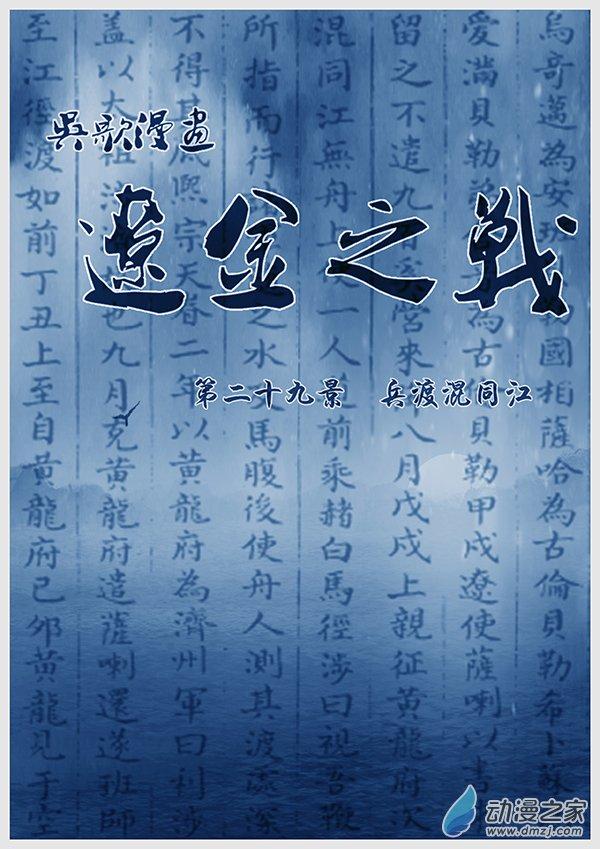 吳歌漫畫
遼金之戰
第二十九景 兵渡混同江
烏奇邁為安班勒國相薩哈為古倫貝勒希卜蘇
愛滿貝勒為古貝勒甲戌遼使薩喇以書
留之不遣九百奚營來八月戊戌上親征黃龍府次
混同江無舟上使一人道前乘赭白馬徑涉曰視吾鞭
所指而行之水及馬腹後使舟人測其渡處深
不得其底熙宗天眷二年以黃龍府為濟州軍曰利涉
蓋以太祖涉也九月克黃龍府遣薩喇還遂班師
至江徑渡如前丁丑上至自黃龍府己卯黃龍見于空
动漫之家
www.dmzj.com